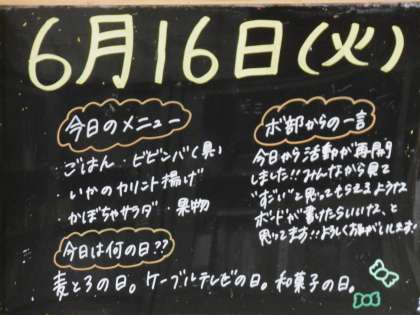 6月16日(火)
今日のメニュー
・ごはん ・ビビンバ(具)
・いかのカリント揚げ
・かぼちゃサラダ ・果物
ボ部からの一言
今日から活動が再開
しました!!みんなから見て
"すごい"と思ってもらえるような
ボードが書けたらいいな、と
思ってます!!よろしくお願いします!
今日は何の日??
麦とろの日。ケーブルテレビの日。和菓子の日。